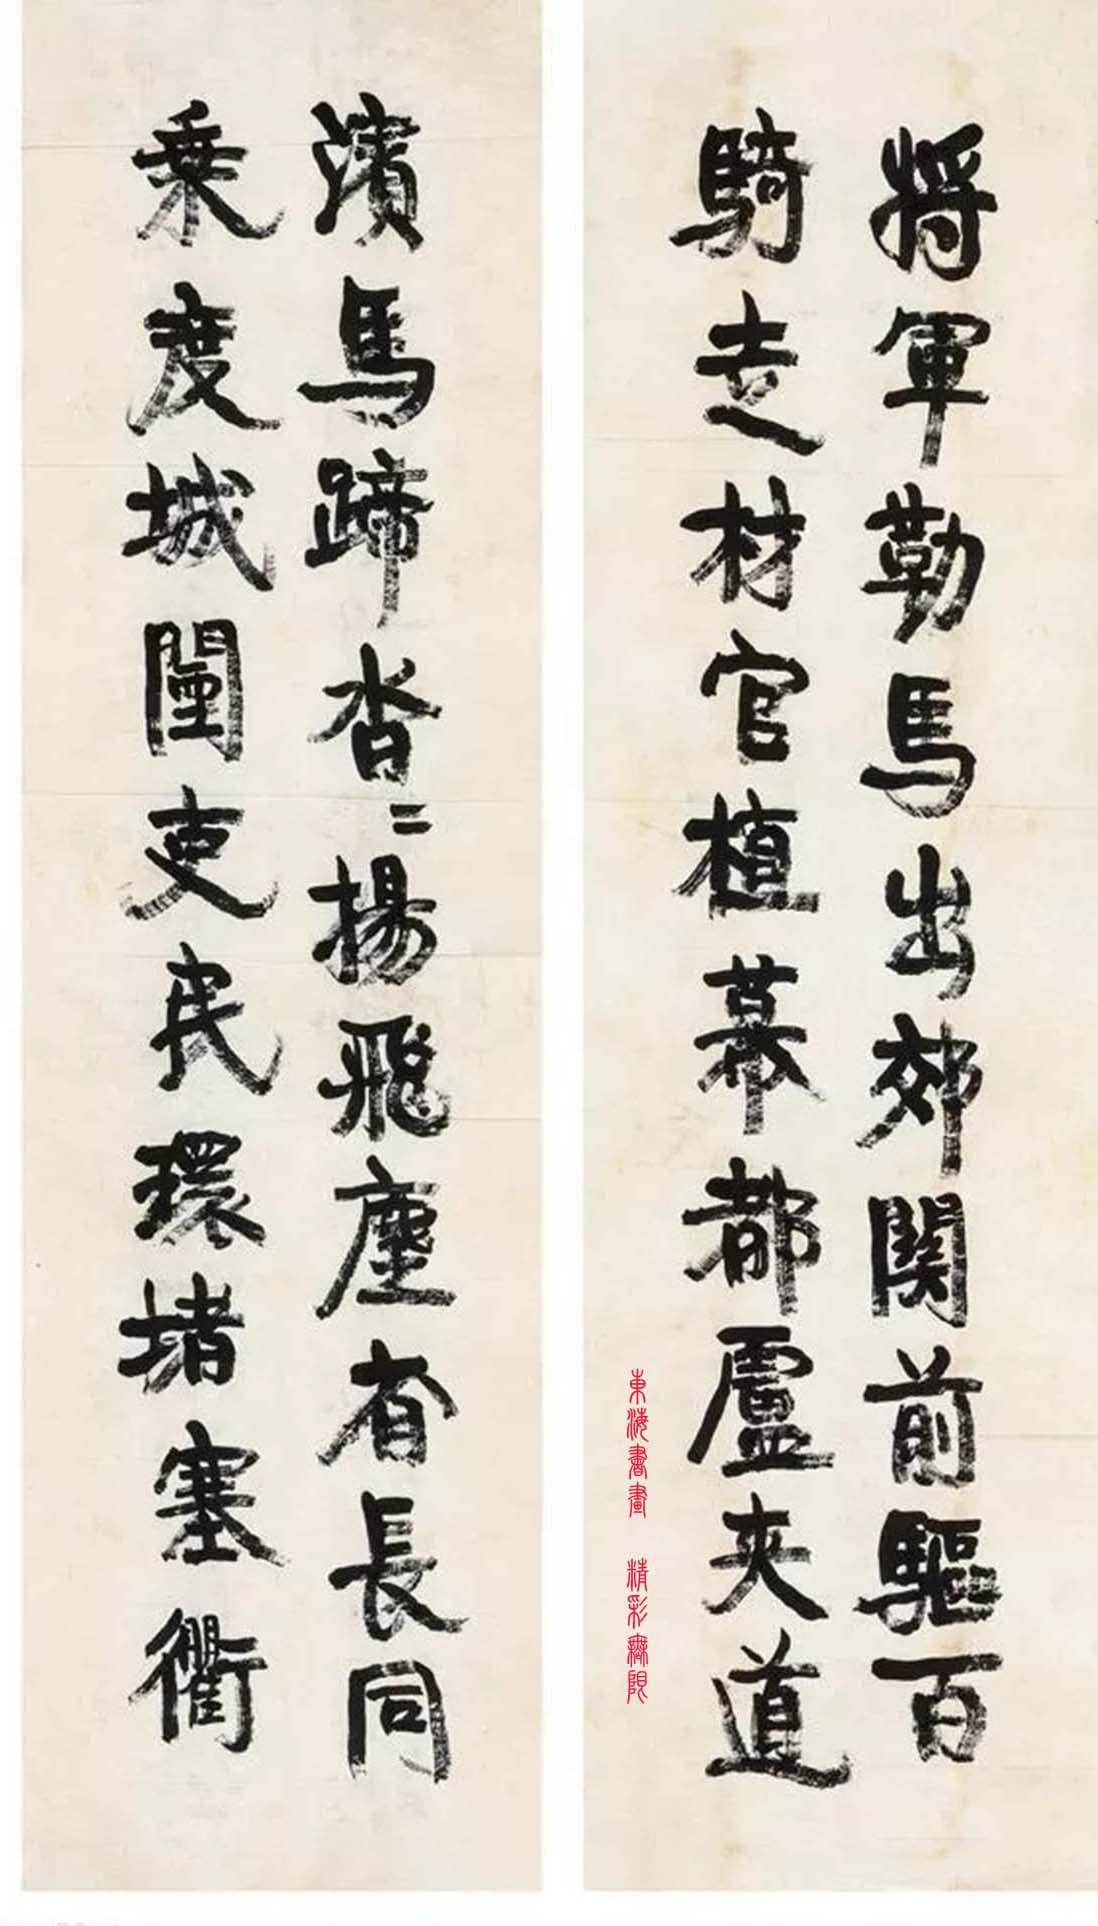 将軍勒馬出郊関前驅百
騎走材官植幕都盧夹道
濱馬蹄沓〻揚飛塵有長同
乗度城闉吏民環堵塞衢
東海書畫 精彩無限